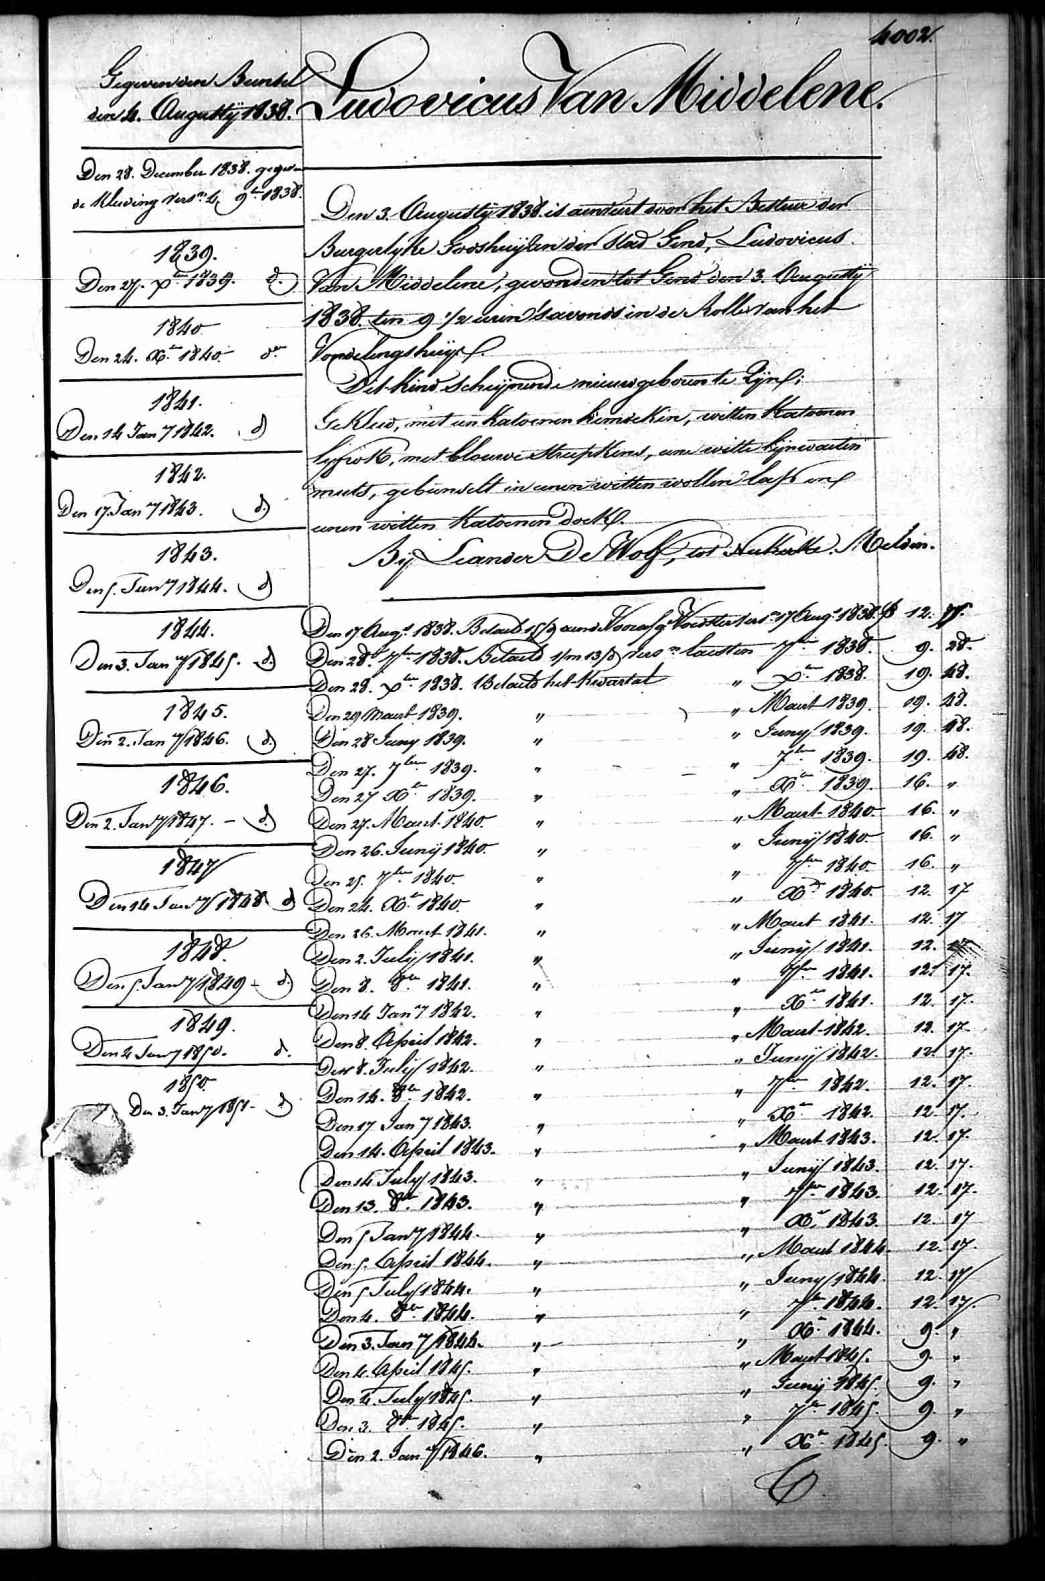 4002.
Gegeven den Bundel
den 4. Augustij 1838.
Den 28. December 1838. gegeven
de Kleeding vers.m 4 9.r 1838.
1839.
Den 27. X.r 1839. d.o
1840
Den 24. X.r 1840. d.o
1841.
Den 14 Jan.y 1842. d.o
1842.
Den 17 Jan.y 1843. d.o
1843.
Den 5. Jan.y 1844. d.o
1844.
Den 3. Jan.y 1845. d.o
1845.
Den 2. Jan.y 1846. d.o
1846.
Den 2. Jan.y 1847. - d.o
1847
Den 14 Jan.y 1848 d.o
1848.
Den 5 Jan.y 1849 - d.o
1849.
Den 4 Jan.y 1850. d.o
1850.
Den 3. Jan.y 1851. d.o
Ludovicus Van Middelene.
Den 3. Augustij 1838. is aenveirt door het Bestuer der
Burgerlyke Godshuyzen der stad Gend, Ludovicus
Van Middelene, gevonden tot Gend den 3. Augustij
1838. ten 9 1/2 uren s'avonds in de Rolle van het
Vondelingshuys.
Dit kind scheynende nieuwgeboren te zyn;
Gekleed, met een katoenen hemdeken, witten katoenen
lyfrok, met blauwe streepkens, eene witte lynwaeten
muts, gebunselt in eenen witten wollen laps en
eenen witten katoenen doek.
By Leander De Wolf, tot Melden.
Den 17 Aug.t 1838. Betaeld Voedster vers.n 17 Aug.t 1838. 12. 17.
Den 28. 7.ber 1838. Betaeld vers.n laesten 7.ber 1838. 9. 28.
Den 28. X.ber 1838. Betaeld het kwartael " X.ber 1838. 19. 48.
Den 29 Maert 1839. " " Maert 1839. 19. 48.
Den 28 Juny 1839. " " Juny 1839. 19. 48.
Den 27. 7.ber 1839. " " 7.ber 1839. 19. 48.
Den 27 X.ber 1839. " " X.ber 1839. 16. "
Den 27. Maert 1840. " " Maert 1840. 16. "
Den 26. Junij 1840. " " Junij 1840. 16. "
Den 25. 7.ber 1840. " " 7.ber 1840. 16. "
Den 24. X.ber 1840. " " X.ber 1840. 12. 17
Den 26. Maert 1841. " " Maert 1841. 12. 17
Den 2. July 1841. " " Junij 1841. 12. 17
Den 8. 8.ber 1841. " " 7.ber 1841. 12. 17.
Den 14 Jan.y 1842. " " X.ber 1841. 12. 17.
Den 8. April 1842. " " Maert 1842. 12. 17.
Den 8. July 1842. " " Junij 1842. 12. 17.
Den 14. 8.ber 1842. " " 7.ber 1842. 12. 17.
Den 17 Jan.y 1843. " " X.ber 1842. 12. 17.
Den 14. April 1843. " " Maert 1843. 12. 17.
Den 14 July 1843. " " Junij 1843. 12. 17.
Den 13. 8.ber 1843. " " 7.ber 1843. 12. 17.
Den 5 Jan.y 1844. " " X.ber 1843. 12. 17
Den 5. April 1844. " " Maert 1844. 12. 17.
Den 5 July 1844. " " Juny 1844. 12. 17
Den 4. 8.ber 1844. " " 7.ber 1844. 12. 17.
Den 3. Jan.y 1844. " " X.ber 1844. 9. "
Den 4. April 1845. " " Maert 1845. 9. "
Den 4. July 1845. " " Junij 1845. 9. "
Den 3. 8.ber 1845. " " 7.ber 1845. 9. "
Den 2. Jan.y 1846. " " X.ber 1845. 9. "